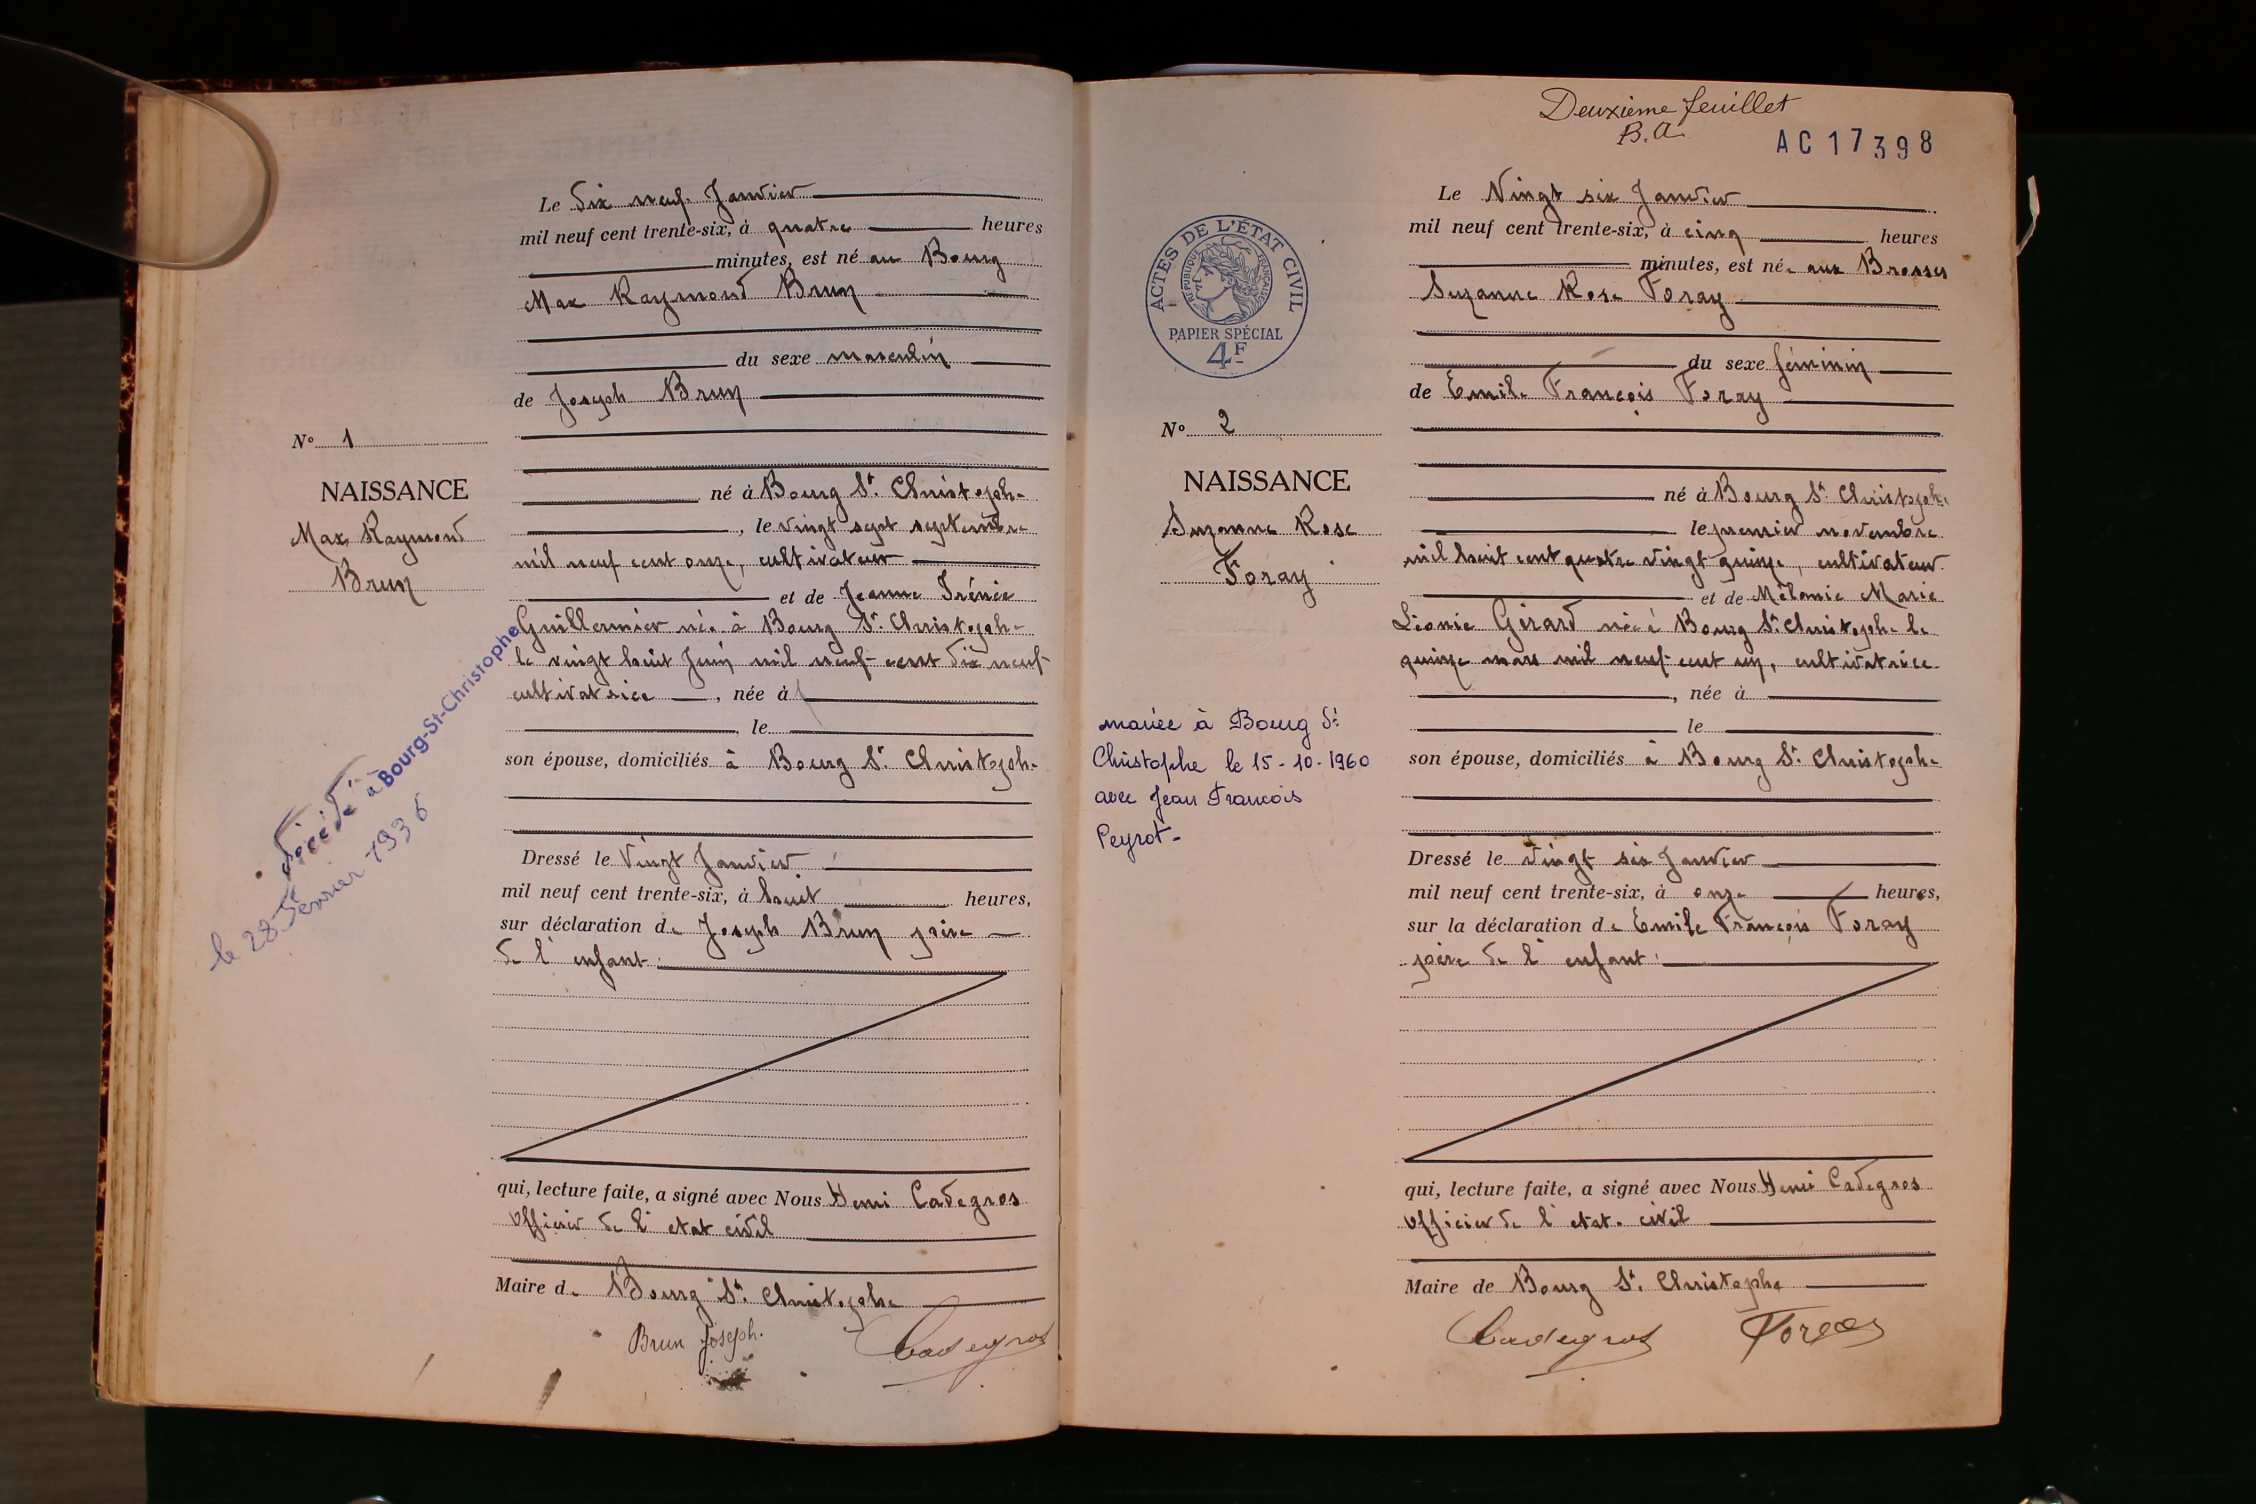 Le dix neuf Janvier
mil neuf cent trente-six, à quatre heures
minutes, est né au Bourg
Max Raymond Brun
du sexe masculin
de Joseph Brun
N° 1
NAISSANCE
Max Raymond
Brun
né à Bourg St. Christophe
, le vingt sept septembre
mil neuf cent onze, cultivateur
et de Jeanne Irénée
Guillermier née à Bourg St. Christophe
le vingt huit Juin mil neuf cent dix neuf
cultivatrice , née à
, le
son épouse, domiciliés à Bourg St. Christophe
décédé à Bourg-St-Christophe
le 28 Fevrier 1936
Dressé le Vingt Janvier
mil neuf cent trente-six, à huit heures,
sur déclaration de Joseph Brun père
de l'enfant
qui, lecture faite, a signé avec Nous Henri Cadegros
officier de l'etat civil
Maire de Bourg St. Christophe
Brun Joseph.
Cadegros
Deuxième feuillet
B.A.
AC 17398
ACTES DE L'ÉTAT CIVIL
RÉPUBLIQUE FRANÇAISE
PAPIER SPÉCIAL
4F
Le Vingt six Janvier
mil neuf cent trente-six, à cinq heures
minutes, est née aux Brosses
Suzanne Rose Foray
du sexe féminin
de Emile François Foray
N° 2
NAISSANCE
Suzanne Rose
Foray
né à Bourg St. Christophe
le premier novembre
mil huit cent quatre vingt quinze, cultivateur
et de Mélanie Marie
Léonie Gérard née à Bourg St. Christophe le
quinze mars mil neuf cent un, cultivatrice
, née à
le
son épouse, domiciliés à Bourg St. Christophe
mariée à Bourg St
Christophe le 15-10-1960
avec Jean François
Peyrot-
Dressé le vingt six Janvier
mil neuf cent trente-six, à onze heures,
sur la déclaration de Emile François Foray
père de l'enfant
qui, lecture faite, a signé avec Nous Henri Cadegros
officier de l'etat civil
Maire de Bourg St. Christophe
Cadegros Foray